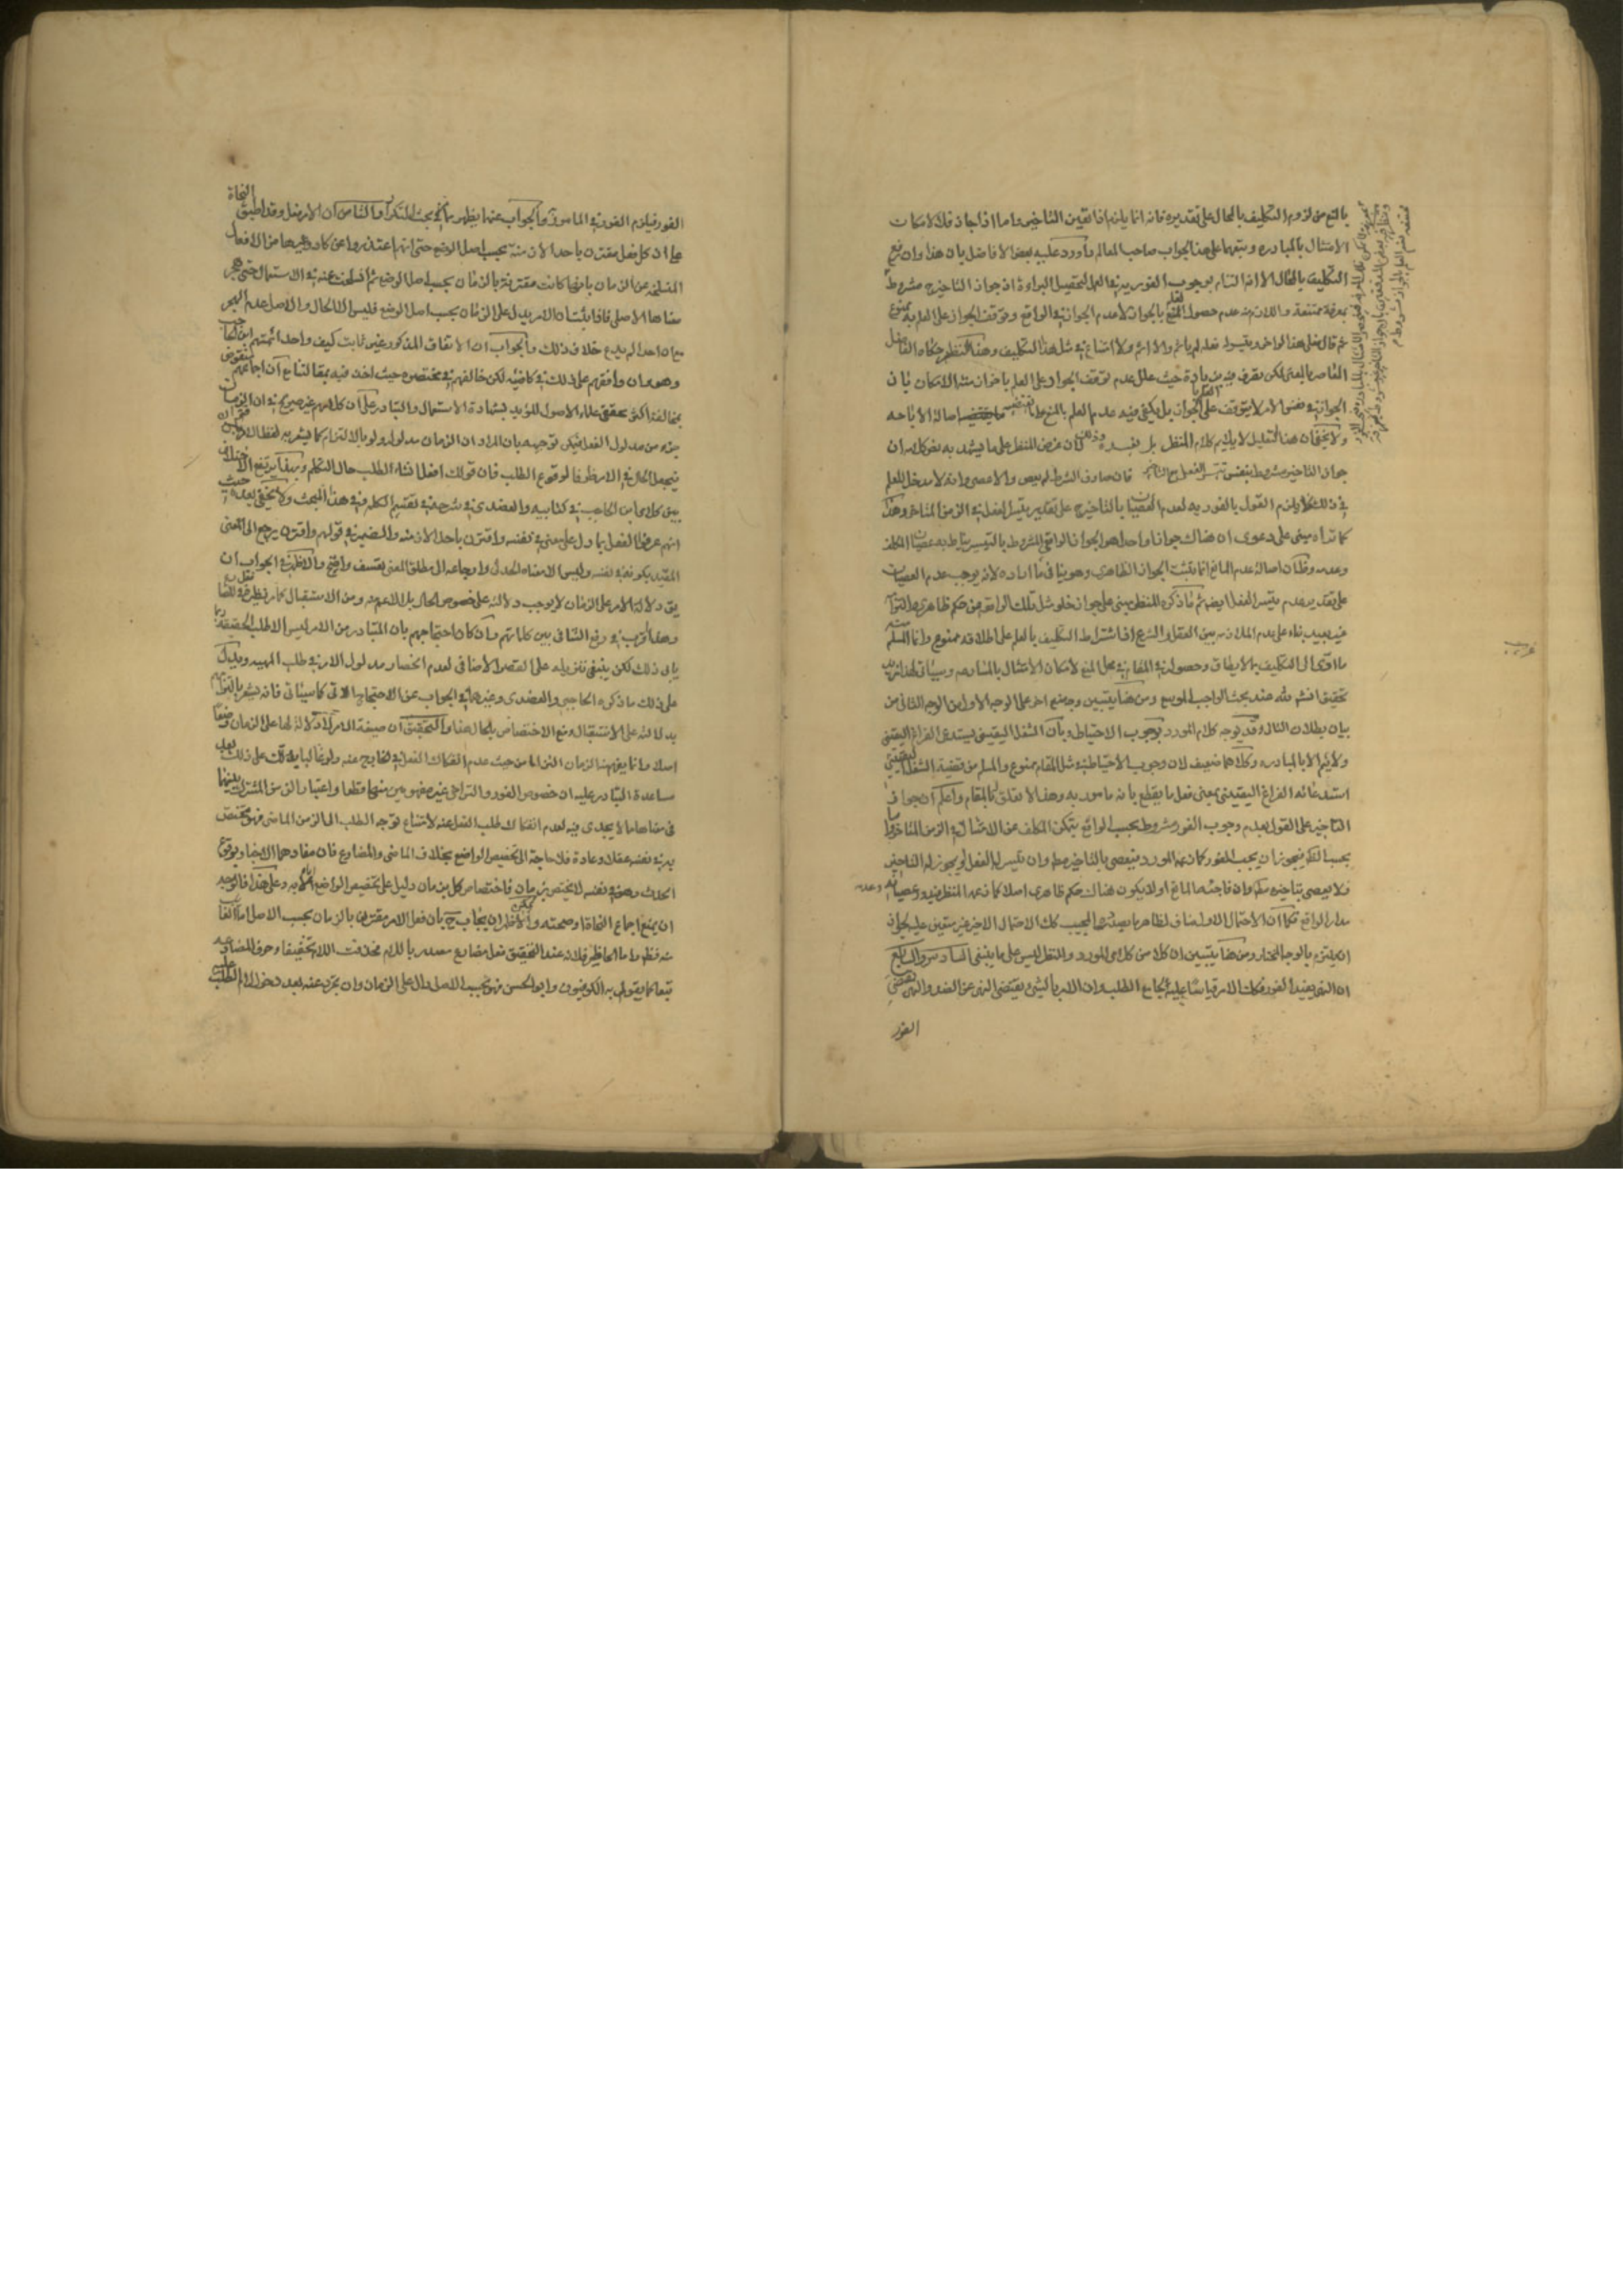 بالمنع من لزوم التكليف بالمحال على تقديره فانه انما يلزم اذا تعين التاخير واما اذا جاز فلا لامكان
الامتثال بالمبادرة وتبعهما على هذا الجواب صاحب المعالم واورد عليه بعض الافاضل بان هذا وان رفع
التكليف بالمحال الا انه التزام بوجوب الفورية في العمل لتحصيل البراءة اذ جواز التاخير مشروط
بمعرفة ممتنعة واللازم منه عدم حصول العلم بالجواز لا عدم الجواز في الواقع وتوقف الجواز على العلم به ممنوع
الجواز في نفس الامر لا يتوقف على العلم بالجواز بل يكفي فيه عدم العلم بالمنع اصالة الاباحة
ولا يخفى ان هذا التعليل لا يلايم كلام المفصل بل يفسده
جواز التاخير مشروط بنفس تيسر الفعل فان صادف الشرط لم يعص والا عصى وانه لا مدخل للعلم
في ذلك فلا يلزم القول بالفورية لعدم العصيان بالتاخير على تقدير تيسر الفعل في الزمن المتاخر وهذا
كما تراه مبني على دعوى ان هناك جوازا واحدا هو الجواز الواقعي المشروط بالتيسر يناط به عصيان المكلف
وعدمه وظ ان اصالة عدم المانع انما يثبت الجواز الظاهري وهو ينافي ما اراده لانه يوجب عدم العصيان
على تقدير عدم تيسر الفعل ايضا ثم ما ذكره المفصل مبني على جواز خلو مثل تلك الواقعة من حكم ظاهري والتزامه
فيه بعيد بناء على عدم الملازمة بين العقل والشرع اذ اشتراط التكليف بالعلم على اطلاقه ممنوع وانما المسلم منه
ما ادى الى التكليف بما لا يطاق وحصوله في المقام في محل المنع لامكان الامتثال بالمبادرة وسياتي لهذا مزيد
تحقيق انشاء الله عند بحث الواجب الموسع ومن هنا يتبين وجه منع اخر على الوجه الاول من الوجه الثاني من
بيان بطلان التالي وقد يوجه كلام المورد بوجوب الاحتياط وبان الشغل اليقيني يستدعي الفراغ اليقيني
ولا يتم الا بالمبادرة وكلاهما ضعيف لان وجوب الاحتياط في مثل المقام ممنوع والمسلم من قضية الشغل اليقيني
استدعائه الفراغ اليقيني بمعنى فعل ما يقطع بانه مامور به وهذا لا تعلق له بالمقام واعلم ان جواز
التاخير على القول بعدم وجوب الفور مشروط بحسب الواقع بتمكن المكلف عن الامتثال في الزمن المتاخر واما
بحسب الظاهر فيجوز ان يجب الفور كما زعمه المورد فيعصي بالتاخير مط وان تيسر له الفعل او يجوز له التاخير
فلا يعصي بتاخيره مط وان فاجئه المانع او لا يكون هناك حكم ظاهري اصلا كما زعمه المفصل فيدور عصيانه وعدمه
مدار الواقع فكما ان الاحتمال الاول مناف لظاهر ما بصدده المجيب كك الاحتمال الاخير غير متعين عليه لجواز
ان يلتزم بالوجه المختار ومن هنا يتبين ان كلا من كلامي المورد والمفصل ليس على ما ينبغي السادس والسابع
ان النهي يفيد الفور فكك الامر قياسا عليه بجامع الطلب وان الامر بالشيء يقتضي النهي عن الضد والنهي يقتضي
الفور
الفور فيلزم الفور في المامور به والجواب عنهما يظهر مما مر في بحث التكرار الثامن ان الامر فعل وقد اطبق النحاة
على ان كل فعل مقترن باحد الازمنة بحسب اصل الوضع حتى انهم اعتذروا عن كاد وغيرها من الافعال
المنسلخة عن الزمان بانها كانت مقترنة بالزمان بحسب اصل الوضع ثم انسلخت عنه في الاستعمال حتى هجر
معناها الاصلي فاذا ثبت ان الامر يدل على الزمان بحسب اصل الوضع فليس الا الحال والاصل عدم الهجر
مع ان احدا لم يدع خلاف ذلك والجواب ان الاتفاق المذكور غير ثابت كيف واحد ائمتهم ابن الحاجب
وهو وان وافقهم على ذلك في كافيته لكن خالفهم في مختصره
بمخالفة اكثر محققي علماء الاصول المؤيد بشهادة الاستعمال والتبادر على ان كلامهم غير صريح في ان الزمان
جزء من مدلول الفعل فيمكن توجيهه بان المراد ان الزمان مدلول ولو بالالتزام كما يشعر به لفظ الاقتران
فيجعل الحال في الامر ظرفا لوقوع الطلب فان قولك افعل انشاء الطلب حال التكلم وبهذا يرتفع الاختلاف
بين كلامي ابن الحاجب في كتابيه والعضدي في شرحه في تقسيم الكلمة في هذا المبحث ولا يخفى بعده حيث
انهم عرفوا الفعل بما دل على معنى في نفسه واقترن باحد الازمنة والضمير في قولهم واقترن يرجع الى المعنى
المقيد بكونه في نفسه وليس الا معناه الحدثي وارجاعه الى مطلق المعنى تعسف واضح والاظهر في الجواب ان
يق دلالة الامر على الزمان لا يوجب دلالته على خصوص الحال بل الاعم منه ومن الاستقبال
وهذا اقرب في رفع التنافي بين كلماتهم وان كان احتجاجهم بان المتبادر من الامر ليس الا طلب الحقيقة ربما
يابى ذلك لكن ينبغي تنزيله على القصد الاضافي لعدم انحصار مدلول الامر في طلب المهية ويدل
على ذلك ما ذكره الحاجبي والعضدي وغيرهما في الجواب عن الاحتجاج الاتي كما سياتي فانه يشعر بالتزامهم
بدلالته على الاستقبال ومنع الاختصاص بالحال هذا والتحقيق ان صيغة الامر لا دلالة لها على الزمان وضعا
اصلا وانما يفهم منها الزمان التزاما من حيث عدم انفكاك الفعل في الخارج عنه
مساعدة التبادر عليه ان خصوص الفور والتراخي غير مفهومين منها قطعا واعتبار الزمن المشترك بينهما
في معناها مما لا يجدي فيه لعدم انفكاك طلب الفعل عنه لامتناع توجه الطلب الى الزمن الماضي فهو مختص
به في نفسه عقلا وعادة فلا حاجة الى تخصيص الواضع بخلاف الماضي والمضارع فان مفادهما الاخبار بوقوع
الحدث وهو في نفسه لا يختص بزمان فاختصاص كل بزمان دليل على تخصيص الواضع اياه به وعلى هذا فالوجه
ان يمنع اجماع النحاة او صحته والاظهر ان يجاب ح بان فعل الامر مقترن بالزمان بحسب الاصل
منه فظ واما الحاظر فلانه عند التحقيق فعل مضارع مصدر باللام فحذفت اللام تخفيفا وحرف المضارعة
تبعا كما يقول به الكوفيون وابو الحسن فهو بحسب الاصل دال على الزمان وان تجرد عنه بعد دخول لام الطلب عليه